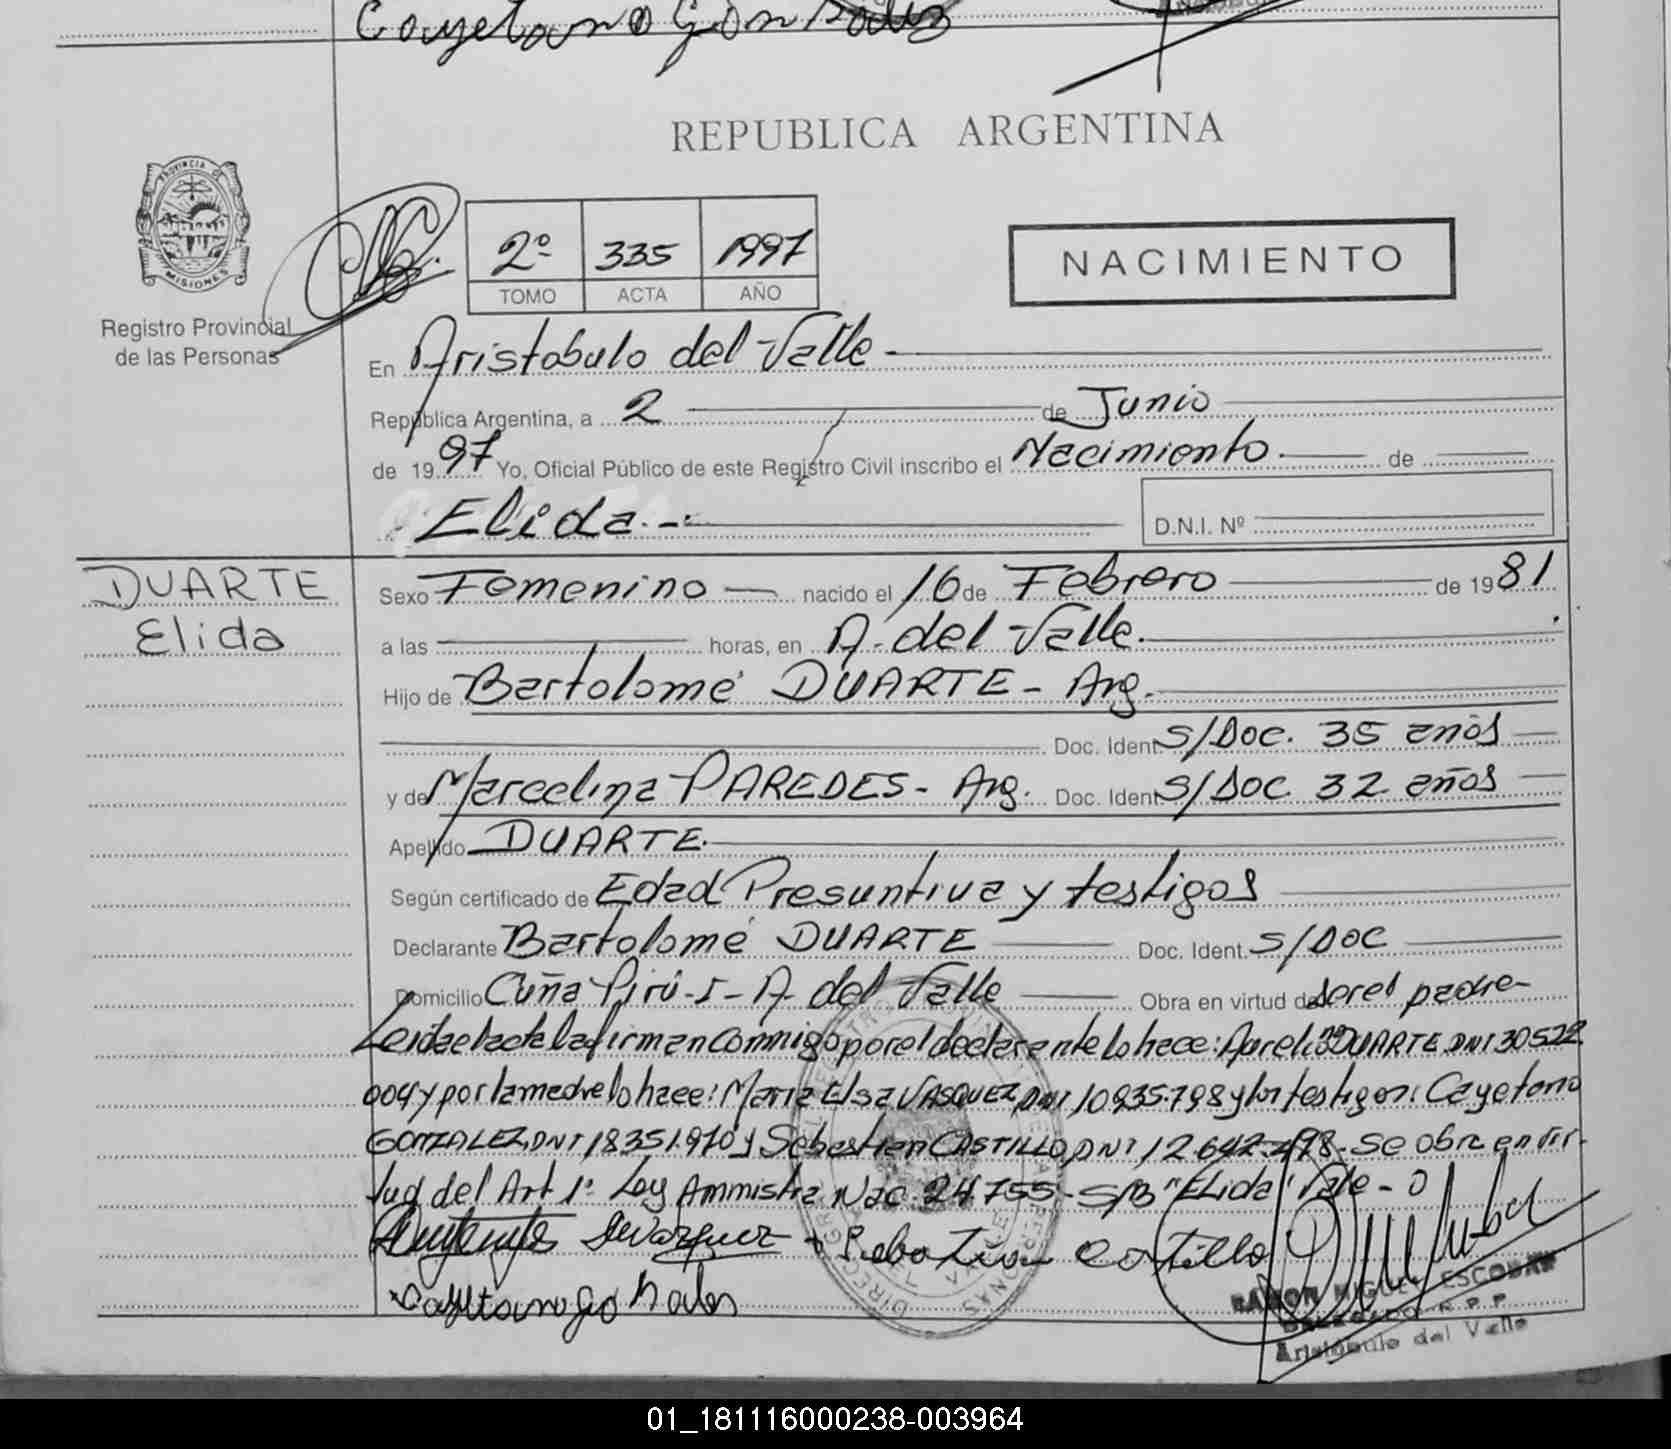 Cayetano Gonzales
REPUBLICA ARGENTINA
PROVINCIA DE
MISIONES
Registro Provincial
de las Personas
2º 335 1997
TOMO ACTA AÑO
NACIMIENTO
En Aristobulo del Valle
República Argentina, a 2 de Junio
de 1997 Yo, Oficial Público de este Registro Civil inscribo el Nacimiento. de
Elida.-
D.N.I. Nº
DUARTE
Elida
Sexo Femenino nacido el 16 de Febrero de 1981
a las horas, en A. del Valle.
Hijo de Bartolomé DUARTE - Arg.
Doc. Ident. S/Doc. 35 años
y de Marcelina PAREDES - Arg. Doc. Ident. S/Doc. 32 años
Apellido DUARTE.
Según certificado de Edad Presuntiva y testigos
Declarante Bartolomé DUARTE Doc. Ident. S/DOC
Domicilio Cuña Pirú - I - A. del Valle Obra en virtud de ser el padre -
Leida el acta la firman conmigo por el declarante lo hace: Aurelio DUARTE DNI 30522.
004 y por la madre lo hace: Maria Elsa VASQUEZ DNI 10.935.798 y los testigos: Cayetano
GONZALEZ, DNI 18351.970 y Sebastian CASTILLO, DNI 12.642.498. Se obra en vir-
tud del Art 1º Ley Ammistia Nac. 24.755 - S/B "Elida" Vale - O
Sebastian Castillo
Cayetano Gonzales
RAMON MIGUEL ESCOBAR
DELEGADO R.P.P.
Aristóbulo del Valle
01_181116000238-003964